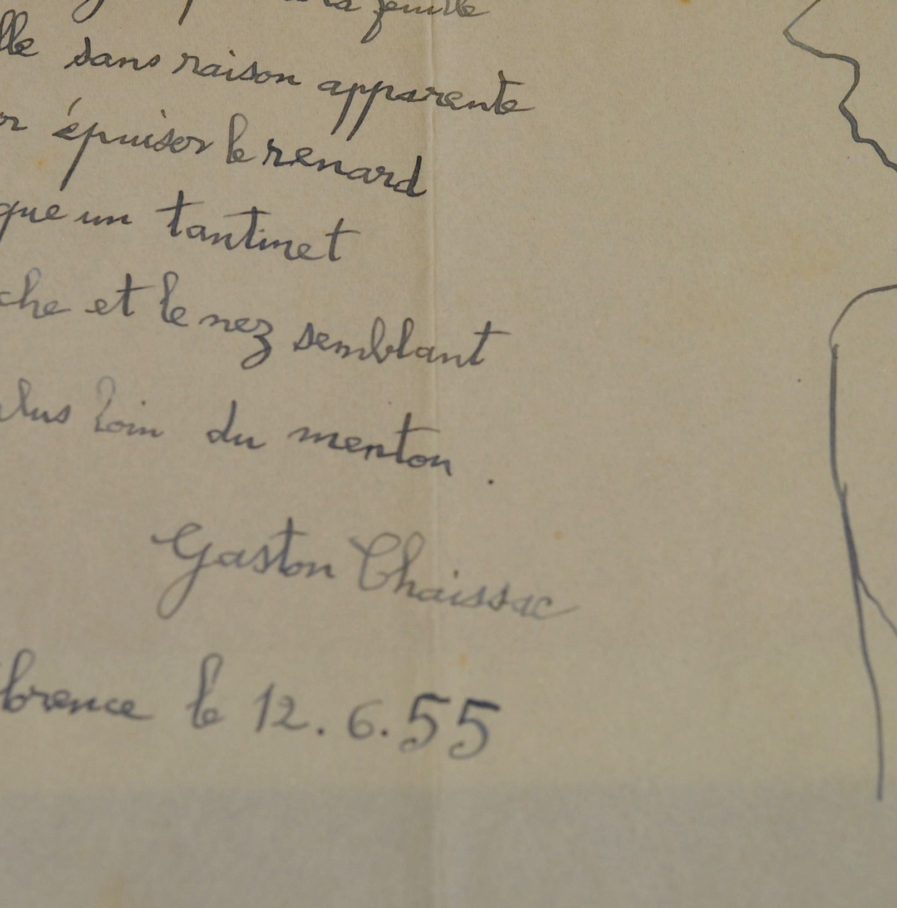 la feuille
lle sans raison apparente
or épuiser le renard
que un tantinet
che et le nez semblant
plus loin du menton.
Gaston Chaissac
lorence le 12.6.55